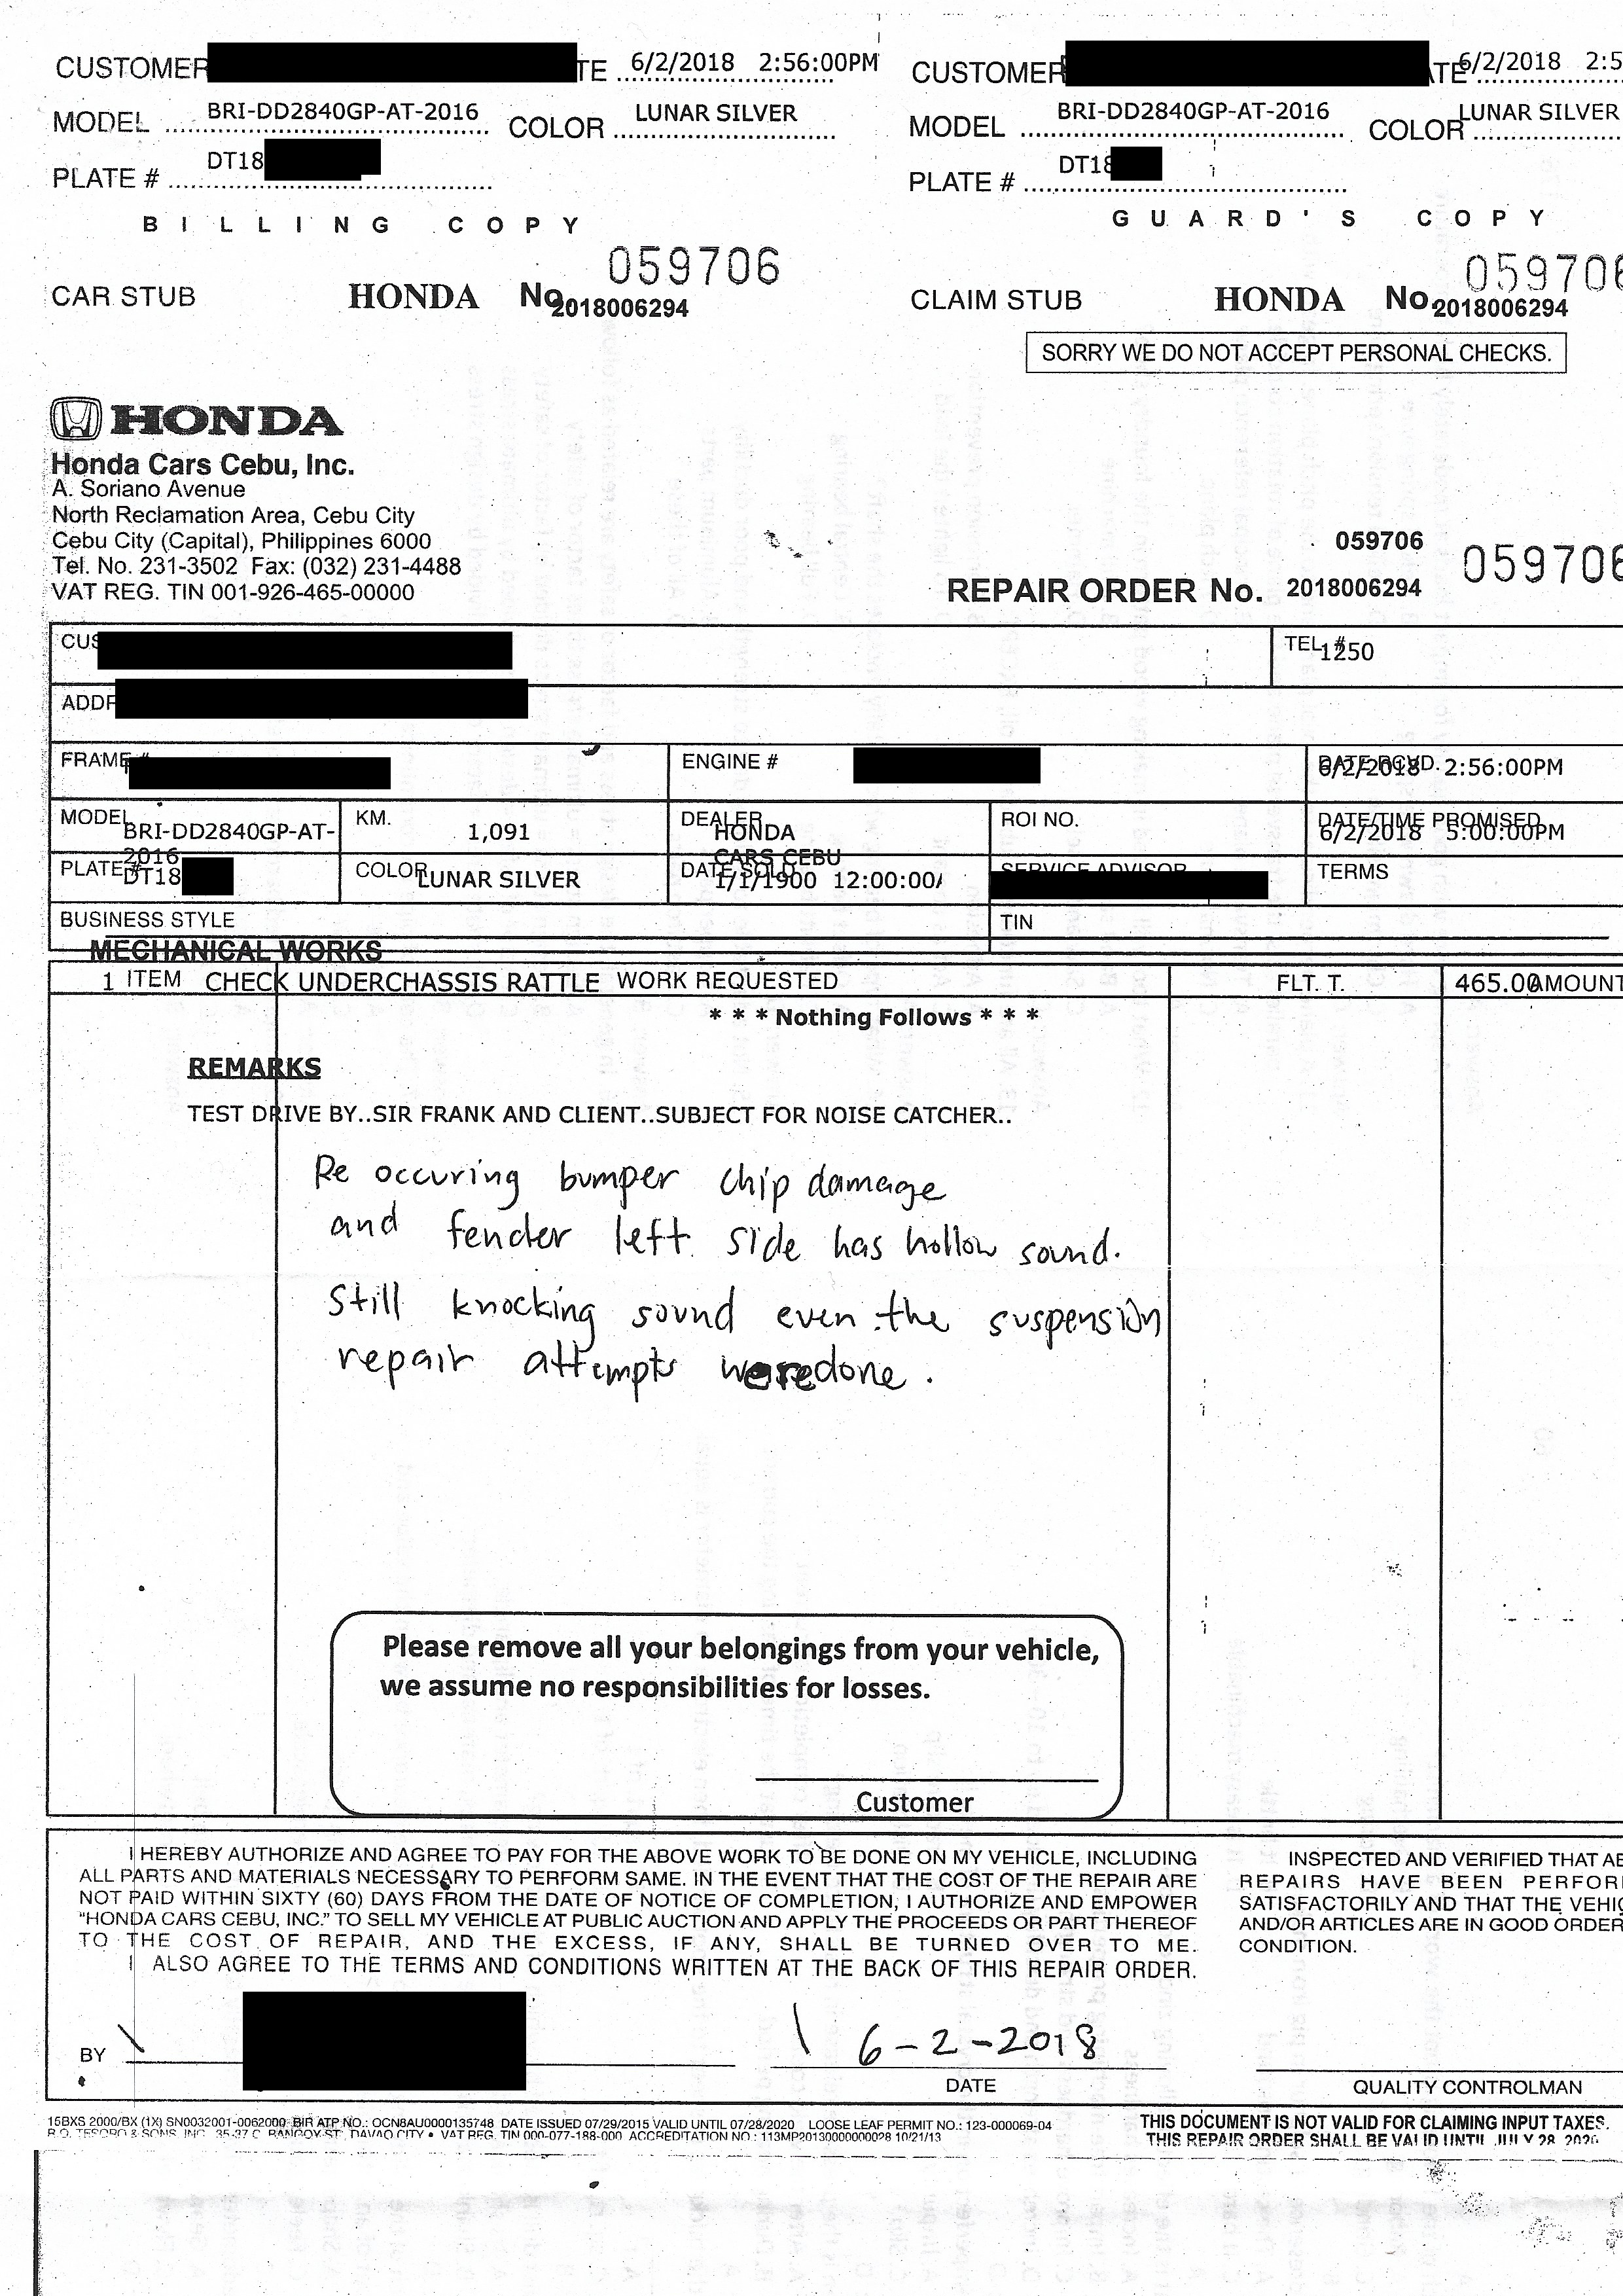 CUSTOMER TE 6/2/2018 2:56:00PM
MODEL BRI-DD2840GP-AT-2016 COLOR LUNAR SILVER
PLATE # DT18
BILLING COPY
059706
CAR STUB HONDA No. 2018006294
CUSTOMER ATE 6/2/2018 2:5
MODEL BRI-DD2840GP-AT-2016 COLOR LUNAR SILVER
PLATE # DT18
GUARD'S COPY
059706
CLAIM STUB HONDA No. 2018006294
SORRY WE DO NOT ACCEPT PERSONAL CHECKS.
HONDA
Honda Cars Cebu, Inc.
A. Soriano Avenue
North Reclamation Area, Cebu City
Cebu City (Capital), Philippines 6000
Tel. No. 231-3502 Fax: (032) 231-4488
VAT REG. TIN 001-926-465-00000
059706 059706
REPAIR ORDER No. 2018006294
CUS TEL # 1250
ADDR
FRAME # ENGINE # DATE RCVD. 6/2/2018 2:56:00PM
MODEL BRI-DD2840GP-AT-2016 KM. 1,091 DEALER HONDA CARS CEBU ROI NO. DATE/TIME PROMISED 6/2/2018 5:00:00PM
PLATE # DT18 COLOR LUNAR SILVER DATE SOLD 1/1/1900 12:00:00A SERVICE ADVISOR TERMS
BUSINESS STYLE TIN
MECHANICAL WORKS
1 ITEM CHECK UNDERCHASSIS RATTLE WORK REQUESTED FLT. T. 465.00 AMOUNT
* * * Nothing Follows * * *
REMARKS
TEST DRIVE BY..SIR FRANK AND CLIENT..SUBJECT FOR NOISE CATCHER..
Re occuring bumper chip damage
and fender left side has hollow sound.
Still knocking sound even the suspension
repair attempts were done.
Please remove all your belongings from your vehicle,
we assume no responsibilities for losses.
Customer
I HEREBY AUTHORIZE AND AGREE TO PAY FOR THE ABOVE WORK TO BE DONE ON MY VEHICLE, INCLUDING
ALL PARTS AND MATERIALS NECESSARY TO PERFORM SAME. IN THE EVENT THAT THE COST OF THE REPAIR ARE
NOT PAID WITHIN SIXTY (60) DAYS FROM THE DATE OF NOTICE OF COMPLETION, I AUTHORIZE AND EMPOWER
"HONDA CARS CEBU, INC." TO SELL MY VEHICLE AT PUBLIC AUCTION AND APPLY THE PROCEEDS OR PART THEREOF
TO THE COST OF REPAIR, AND THE EXCESS, IF ANY, SHALL BE TURNED OVER TO ME.
I ALSO AGREE TO THE TERMS AND CONDITIONS WRITTEN AT THE BACK OF THIS REPAIR ORDER.
INSPECTED AND VERIFIED THAT AB
REPAIRS HAVE BEEN PERFOR
SATISFACTORILY AND THAT THE VEHIC
AND/OR ARTICLES ARE IN GOOD ORDER
CONDITION.
BY 6-2-2018
DATE
QUALITY CONTROLMAN
15BXS 2000/BX (1X) SN0032001-0062000 BIR ATP NO.: OCN8AU0000135748 DATE ISSUED 07/29/2015 VALID UNTIL 07/28/2020 LOOSE LEAF PERMIT NO.: 123-000069-04
R.O. TESORO & SONS, INC. 35-37 C. BANGOY ST., DAVAO CITY • VAT REG. TIN 000-077-188-000 ACCREDITATION NO.: 113MP20130000000028 10/21/13
THIS DOCUMENT IS NOT VALID FOR CLAIMING INPUT TAXES.
THIS REPAIR ORDER SHALL BE VALID UNTIL JULY 28, 2020